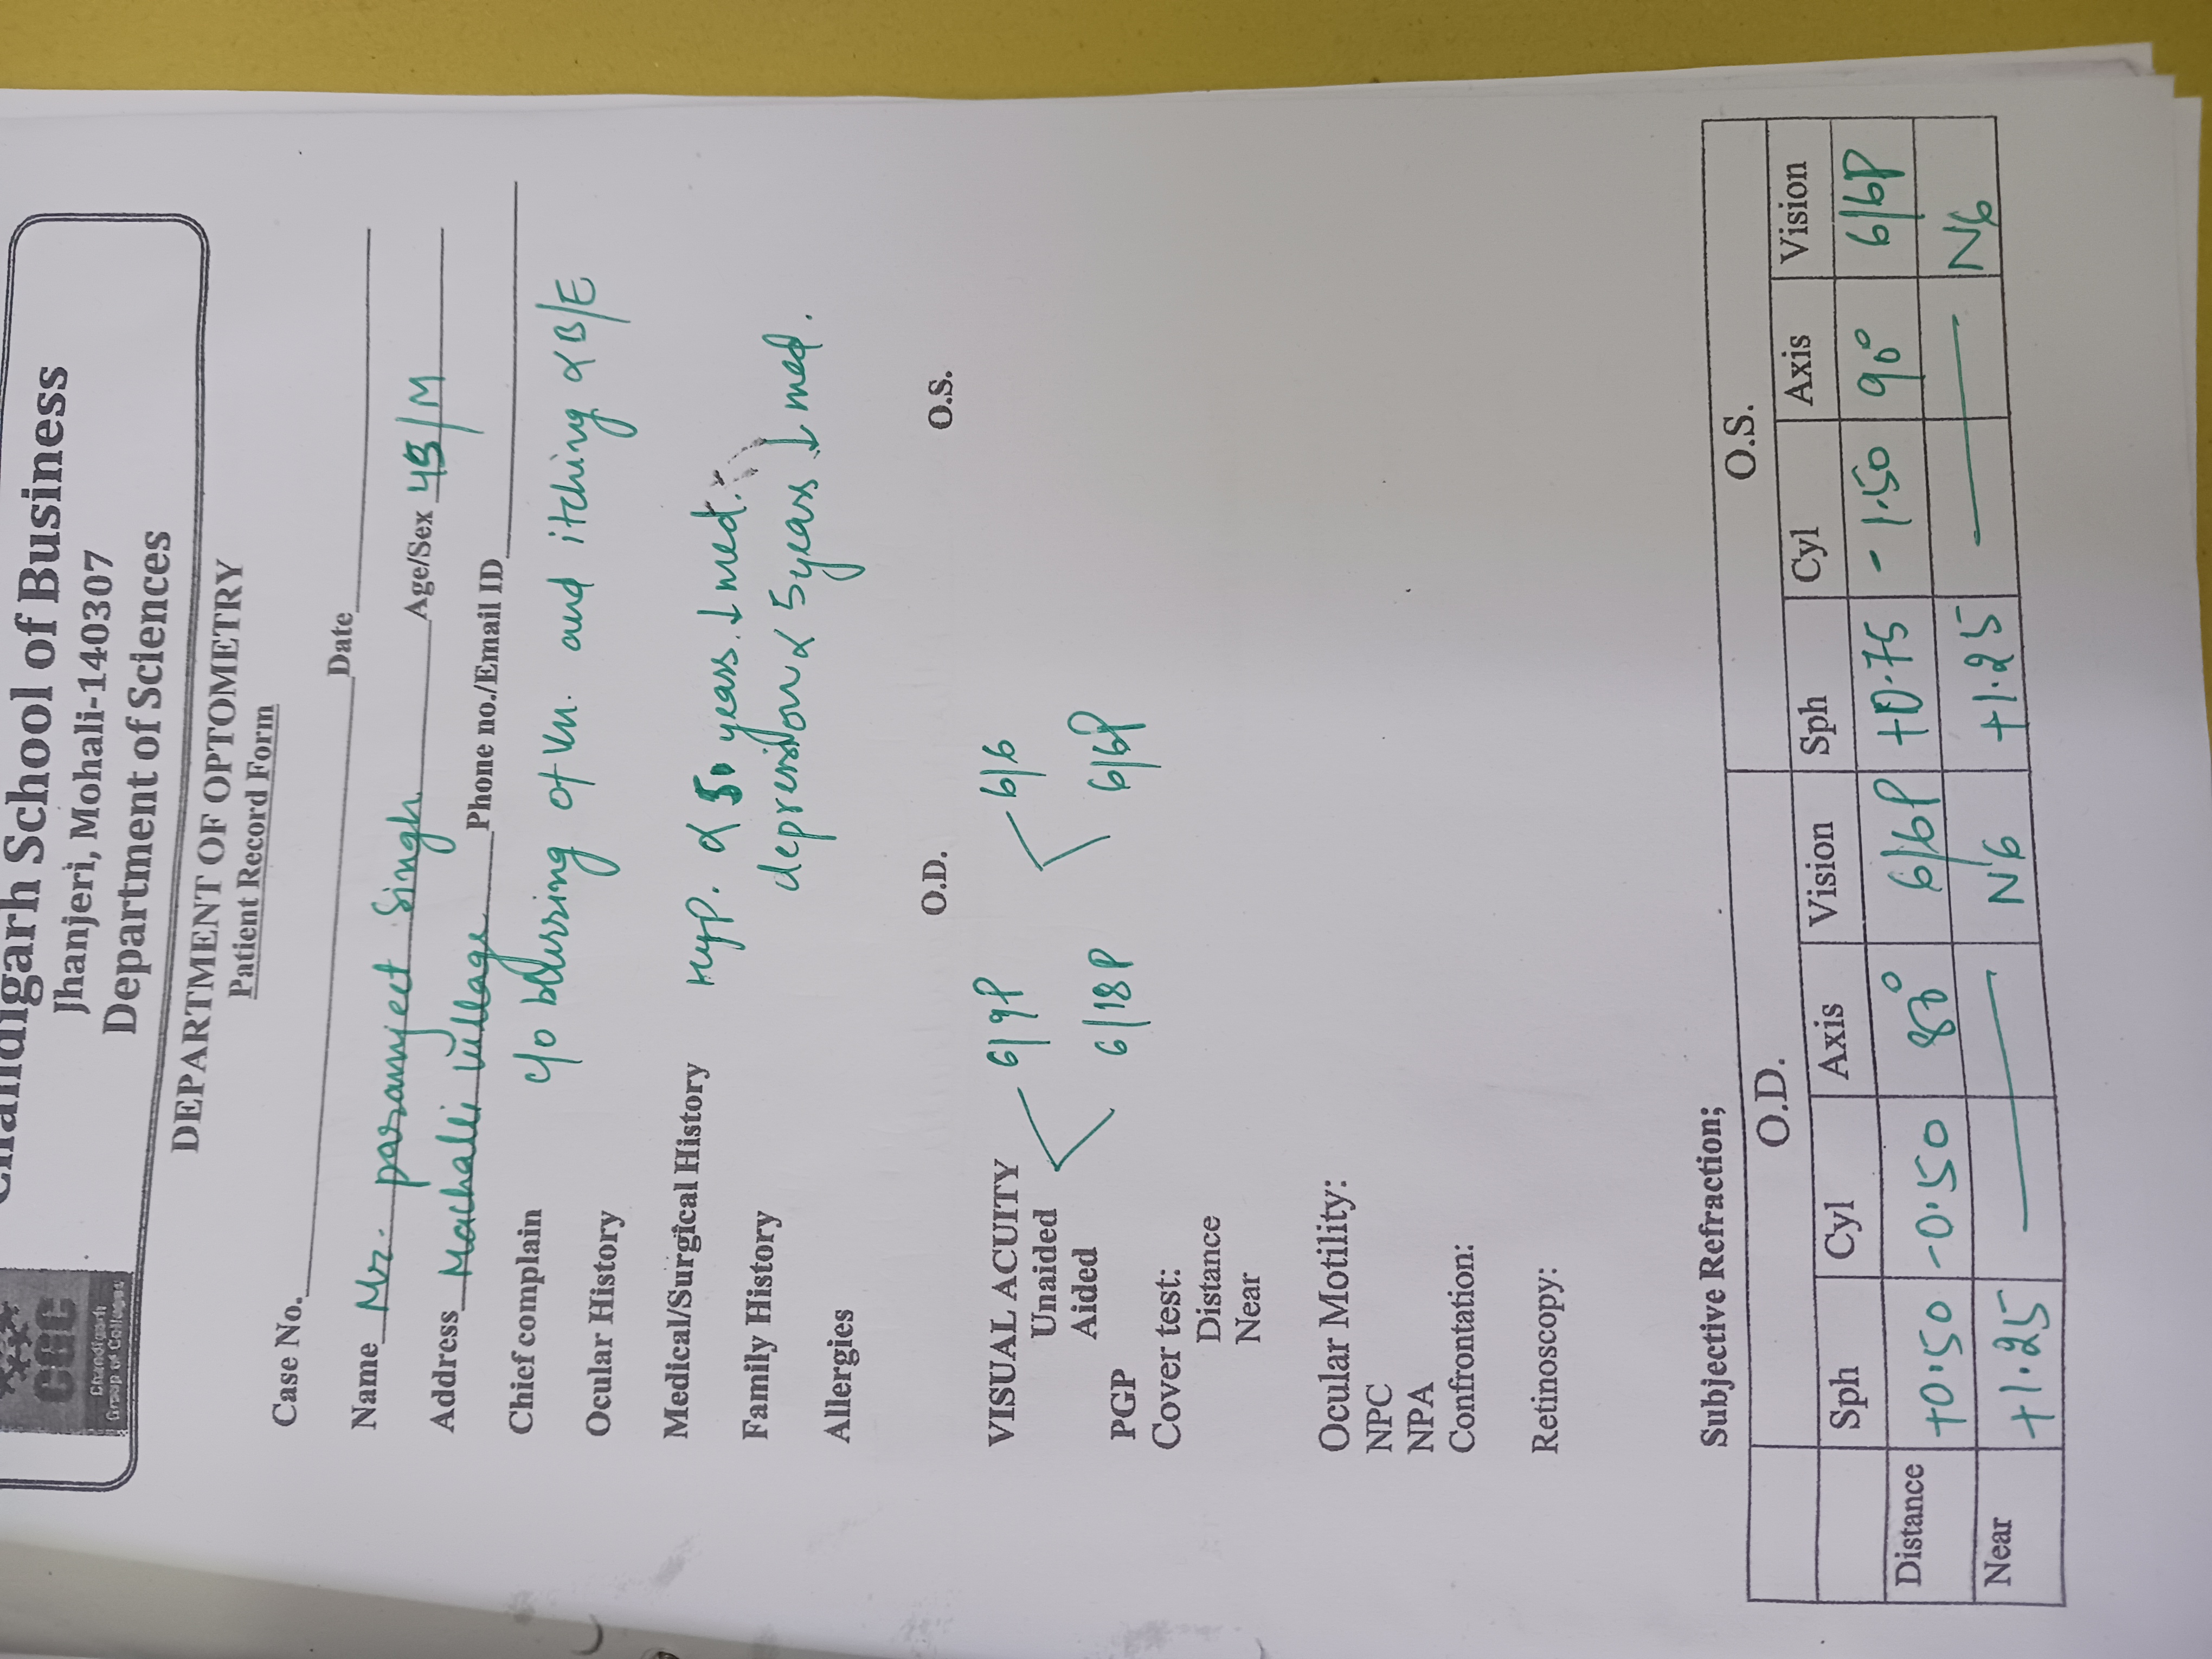 Chandigarh School of Business
Jhanjeri, Mohali-140307
Department of Sciences
CGC
Chandigarh
Group of Colleges
DEPARTMENT OF OPTOMETRY
Patient Record Form
Case No. Date
Name Mr. paramjeet Singh Age/Sex 45/M
Address Machalli Village Phone no./Email ID
Chief complain c/o blurring of Vn. and itching α B/E
Ocular History
Medical/Surgical History Hyp. α years ↓ med.
Family History depression α 5 years ↓ med.
Allergies
O.D. O.S.
VISUAL ACUITY 6/9P 6/6
Unaided
Aided
6/18P 6/6P
PGP
Cover test:
Distance
Near
Ocular Motility:
NPC
NPA
Confrontation:
Retinoscopy:
Subjective Refraction;
O.D. O.S.
Sph Cyl Axis Vision Sph Cyl Axis Vision
Distance +0.50 -0.50 80° 6/6P +0.75 -1.50 90° 6/6P
Near +1.25 — N6 +1.25 — N6